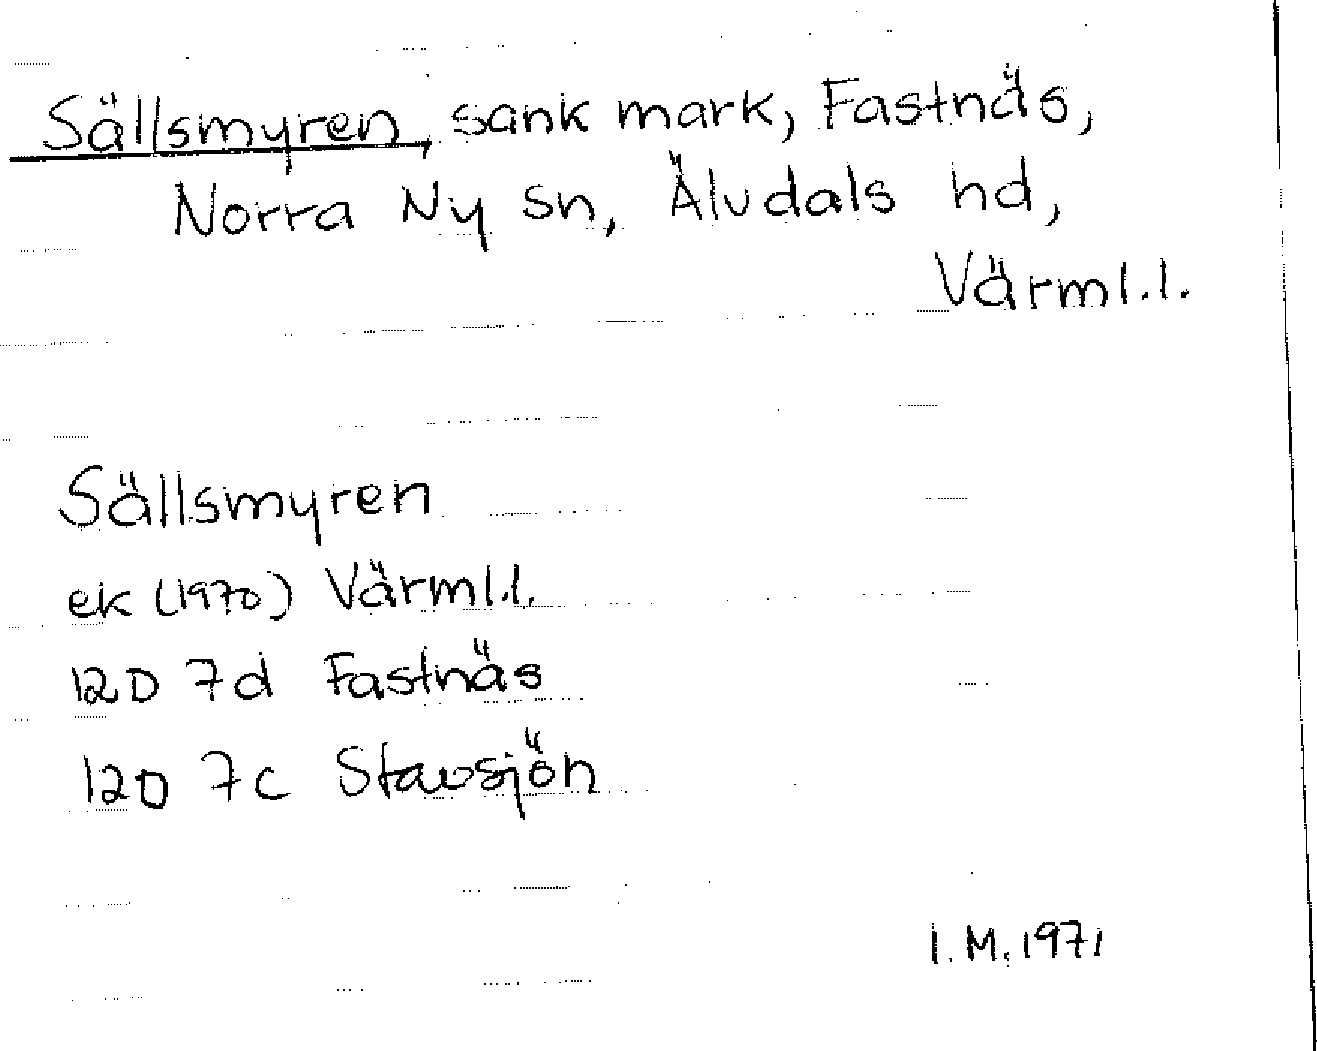 Sällsmyren, sank mark, Fastnäs,
Norra Ny sn, Älvdals hd,
Värml.l.
Sällsmyren
ek (1970) Värml.l.
12D 7d Fastnäs
12D 7c Stavsjön
I.M. 1971